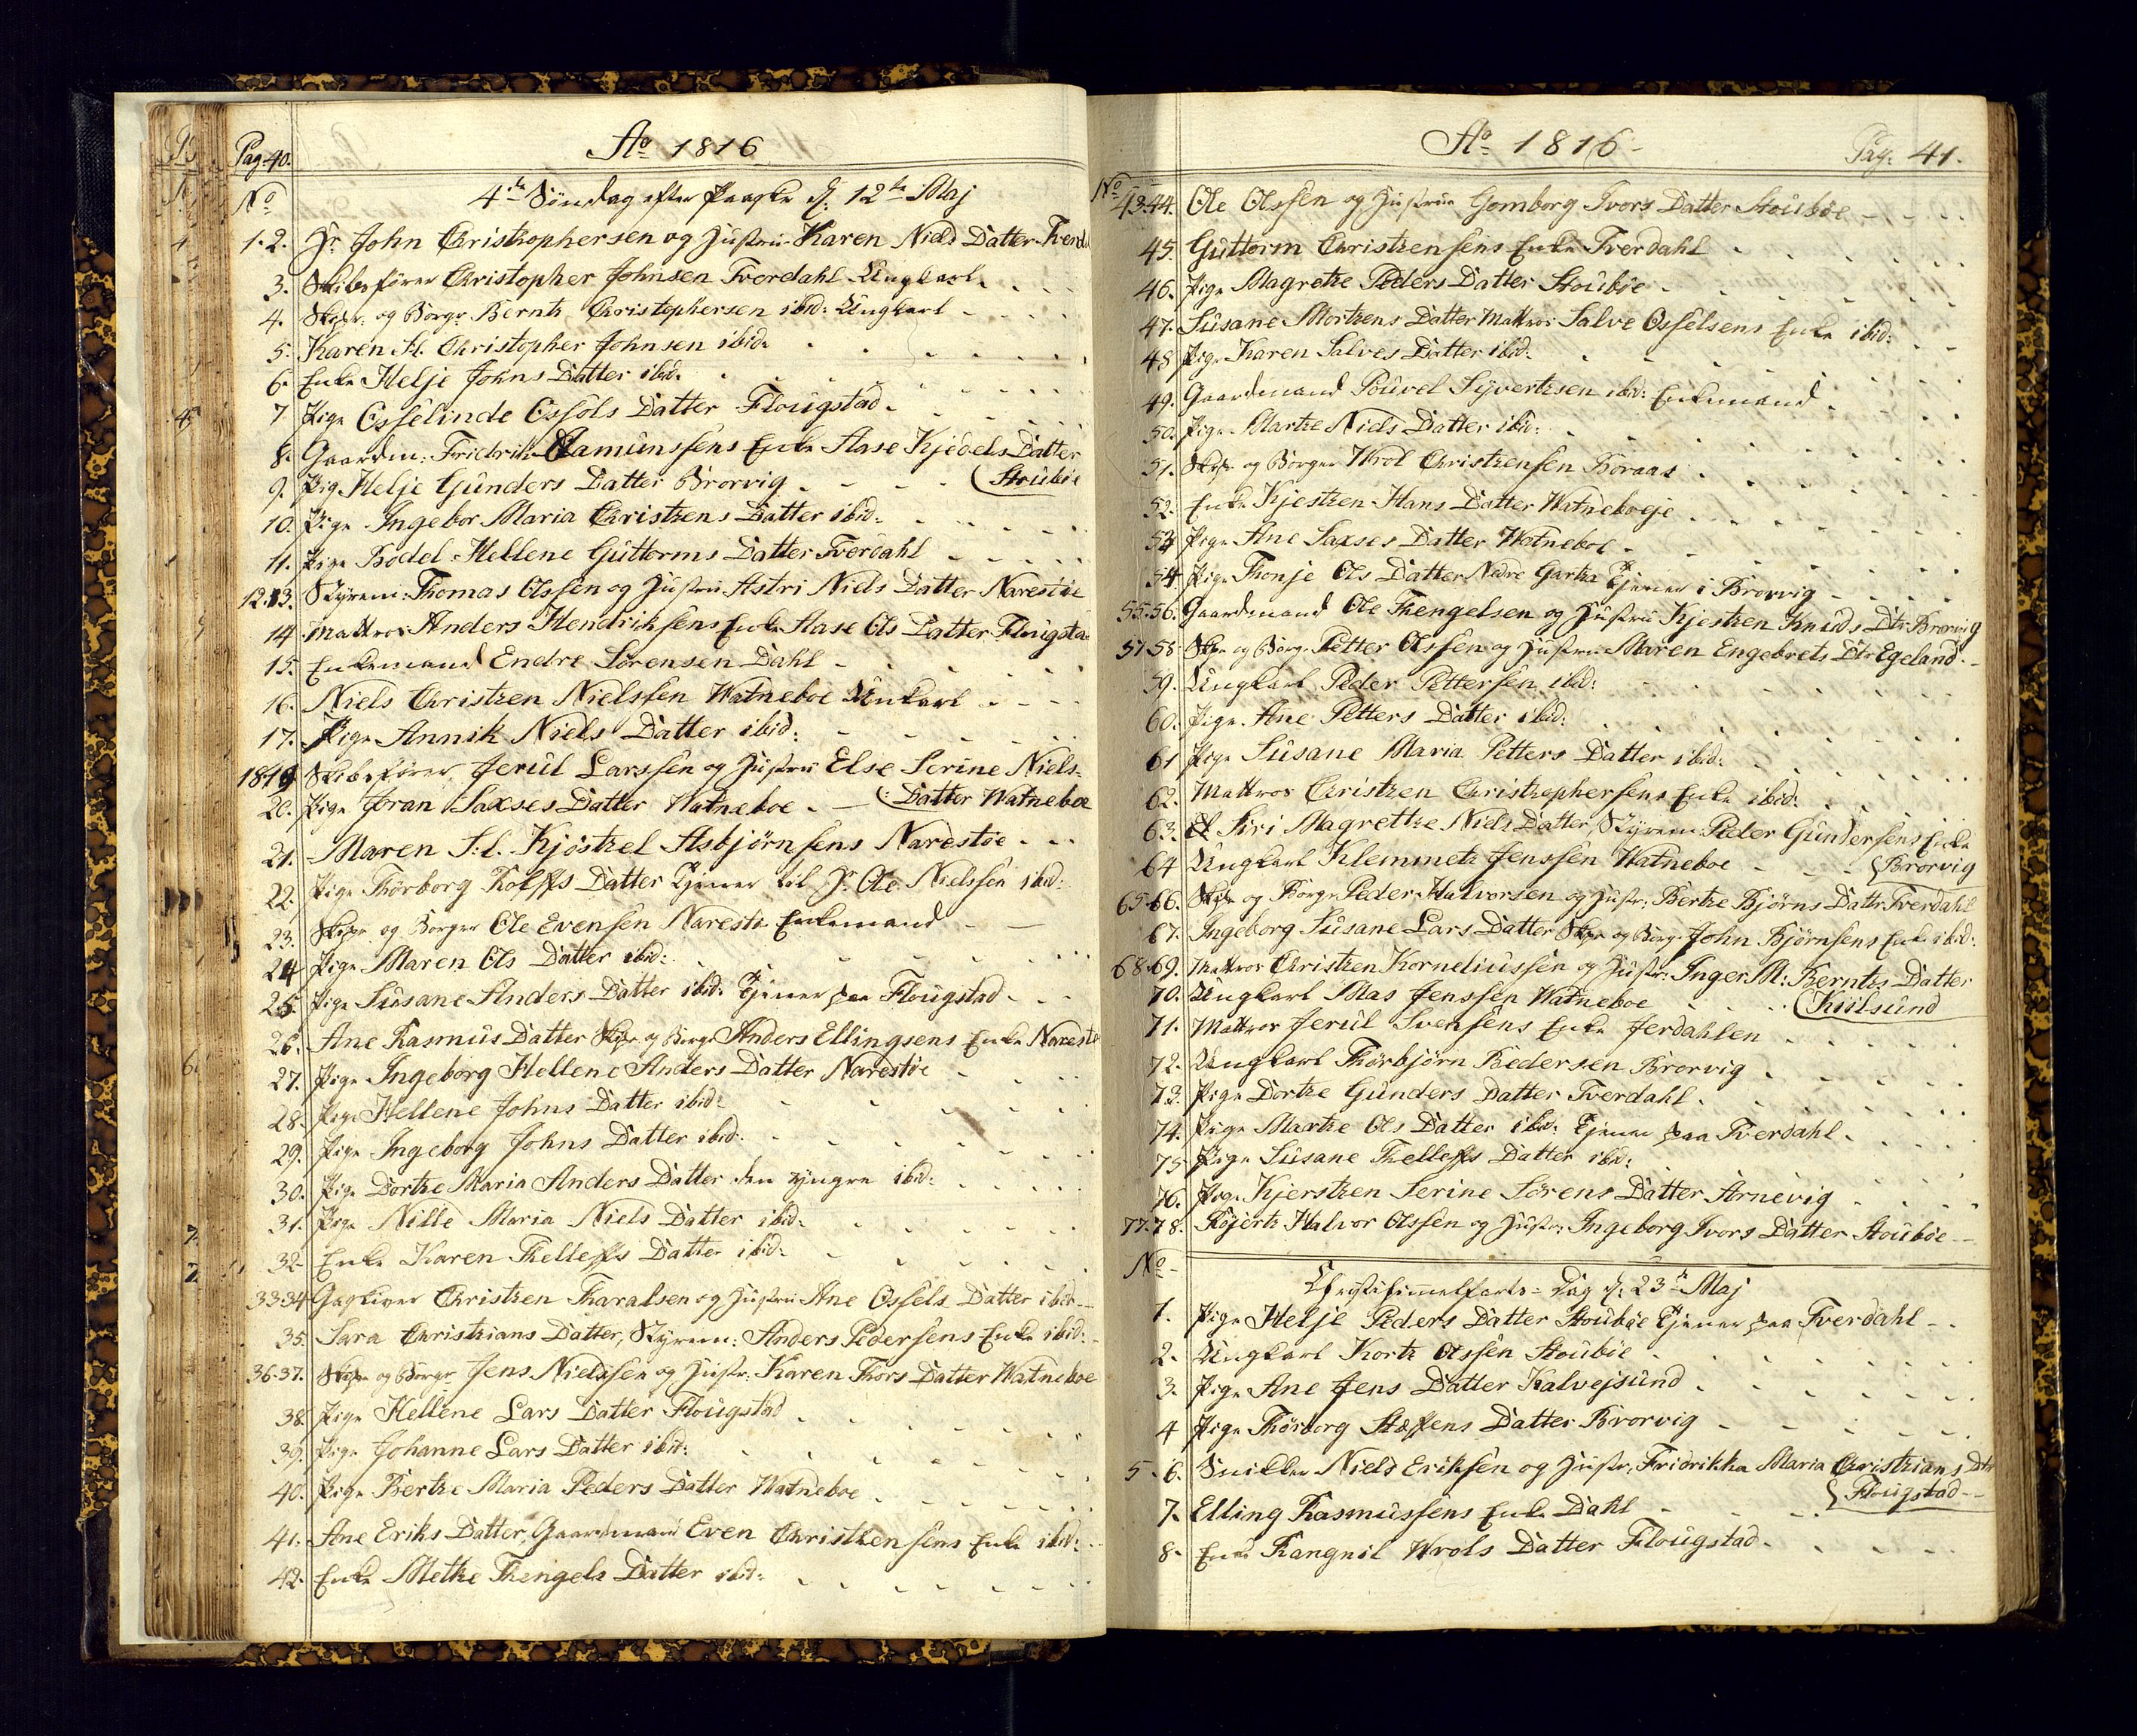 Pag. 40.
Ao 1816
No
4de Søndag efter Paaske d: 12te Maj
1. 2. Hr. John Christophersen og Hustrue Karen Niels Datter Tverd
3. Skibsfører Christopher Johnsen Tverdahl Ungkarl
4. Skipr. og Borgr. Berntz Christophersen ibid: Ungkarl
5. Karen Sl. Christopher Johnsen ibid:
6. Enke Helje Johns Datter ibid:
7. Pige Ossélinde Ossóls Datter Flougstad
8. Gaardm: Fridrik Aamunssens Enke Aase Kjédels Datter
9. Pig Helje Gunders Datter Brorvig (Stoubøe
10. Pige Ingebor Maria Christzens Datter ibid:
11. Pige Bodel-Hellene Guttorms Datter Tverdahl
12.13. Styrem: Thomas Olssen og Hustrue Astri Niels Datter Narestøe
14. Mattros Anders Hendriksens Enke Aase Ols Datter Flougsta
15. Enkemand Endre Sörensen Dahl
16. Niels Christzen Nielssen Watneboe Unkarl
17. Pige Annik Niels Datter ibid:
18.19 Skibsfører Jerul Larssen og Hustrue Else Serine Niels-
20. Pige Joran Saxses Datter Watneboe. (: Datter Watneboe
21. Maren S:l. Kjöstzel Asbjörnsens Narestöe
22. Pige Thörborg Rolffs Datter Tjener til Hr. Ole Nielssen ibid:
23. Skipr. og Borger Ole Evensen Narestøe Enkemand
24 Pige Maren Ols Datter ibid:
25. Pige Susane Anders Datter ibid: Tjener paa Flougstad
26. Ane Rasmus Datter Skipr og Borgr Anders Ellingsens Enke Narestø
27. Pige Ingeborg Hellene Anders Datter Narestöe
28. Pige Hellene Johns Datter ibid:
29. Pige Ingeborg Johns Datter ibid:
30. Pige Dortze Maria Anders Datter den yngre ibid:
31. Pige Nille Maria Niels Datter ibid:
32. Enke Karen Thelleffs Datter ibid:
33.34 Gagtiver Christzen Tharalsen og Hustrue Ane Ossels Datter ibid:
35. Sara Christzians Datter, Styrem: Anders Pedersens Enke ibid:
36.37. Skipr og Borgr Jens Nielssen og Hustr: Karen Thors Datter Watneboe
38. Pige Hellene Lars Datter Flougstad
39. Pige Johanne Lars Datter ibid:
40. Pige Bertze Maria Peders Datter Watneboe
41. Ane Eriks Datter, Gaardmand Even Christzensens Enke ibid:
42. Enke Metze Thengels Datter ibid:
Ao 1816
Pag. 41.
No
43.44. Ole Olssen og Hustrue Gomborg Ivors Datter Stoubøe
45. Guttorm Christzensens Enke Tverdahl
46. Pige Magretze Peders Datter Stoubøe
47. Susane Mortzens Datter Mattros Salve Osselsens Enke ibid:
48 Pige Karen Salves Datter ibid:
49. Gaardmand Pouvel Syvertzsen ibid: Enkemand
50. Pige Martze Niels Datter ibid:
51. Skipr og Borger Wrol Christzensen Boraas
52. Enke Kjestzen Hans Datter Watneboeje
53 Pige Ane Saxses Datter Watneboe
54 Pige Thonje Ols Datter Nedre Gartha Tjener i Brorvig
55.56. Gaardmand Ole Thengelsen og Hustrue Kjestzen Knuds Dtr. Brorvig
57 58. Skipr og Borgr Petter Olssen og Hustrue Maren Engebrets Dtr. Egeland
59. Ungkarl Peder Pettersen ibid:
60. Pige Ane Petters Datter ibid:
61 Pige Susane Maria Petters Datter ibid:
62. Mattros Christzen Christzophersens Enke ibid:
63. Siri Magrettze Niels Datter, Styrem Peder Gundersens Enke
64 Ungkarl Klemmetz Jenssen Watneboe {Brorvig
65.66. Skipr og Borgr Peder Halvorsen og Hustr: Bertze Björns Datter Tverdahl
67. Ingeborg Susane Lars Datter Skipr og Borgr John Bjørnsens Enke ibid:
68.69. Mattros Christzen Korneliussen og Hustr: Inger M: Berntzs Datter
70. Ungkarl Mas Jenssen Watneboe (Kiilsund
71. Mattros Jerul Svensens Enke Jerdahlen
72. Ungkarl Thörbjörn Pedersen Brorvig
73. Pige Dortze Gunders Datter Tverdahl
74. Pige Martze Ols Datter ibid: Tjener paa Tverdahl
75 Pige Susane Thelleffs Datter ibid:
76. Pige Kjerstzen Serine Sörens Datter Arnevig
77.78. Röjertz Halvor Olssen og Hustr: Ingeborg Ivors Datter Stoubøe
No
Christihimmelfarts-Dag d: 23de Maj
1. Pige Helje Peders Datter Stoubøe Tjener paa Tverdahl
2. Ungkarl Kortz Olssen Stoubøe
3. Pige Ane Jens Datter Kalvejsund
4 Pige Thörborg Steffens Datter Brorvig
5. 6. Snikker Niels Eriksen og Hustr: Fridrikka Maria Christzians Dtr
7. Elling Rasmussens Enke Dahl {Flougstad
8. Enke Rangnil Wrols Datter Flougstad